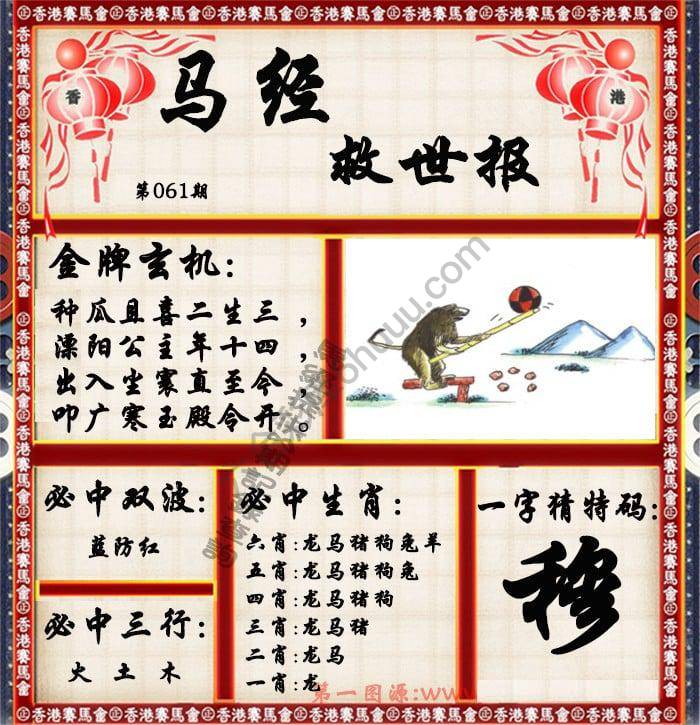 香港賽馬會
香 港
马经
救世报
第061期
金牌玄机:
种瓜且喜二生三，
溧阳公主年十四，
出入尘寰直至今，
叩广寒玉殿令开。
必中双波:
蓝防红
必中三行:
火 土 木
必中生肖:
六肖:龙马猪狗兔羊
五肖:龙马猪狗兔
四肖:龙马猪狗
三肖:龙马猪
二肖:龙马
一肖:龙
一字猜特码:
穆
第一图源:www